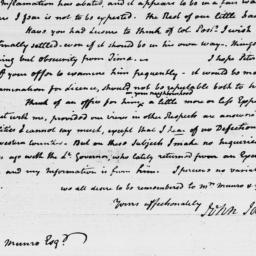 Inflammation has abated, and it appears to be in a fair wa
s I fear is not to be expected. The Rest of our little
Have you had Leisure to think of Col. Post's Jewish
finally settled. even if it should be in his own way. things
ing but obscurity from Time.— I hope Peter
of your offer to examine him frequently. it would be
examination for Licence, should not be reputable both to
in your neighbourhood
Think of an office for him a little more or less
with me, provided our views in other Respects are answer
I cannot say much, except that I hear of no Defection
western counties. But on these Subjects I make no Inquiries
ago with the Lt. Governor, who lately returned from an
and my Information is from him. I perceive no varia
we all desire to be remembered to Mrs Munro &
Yours affectionately
John Ja
Munro Esqr.